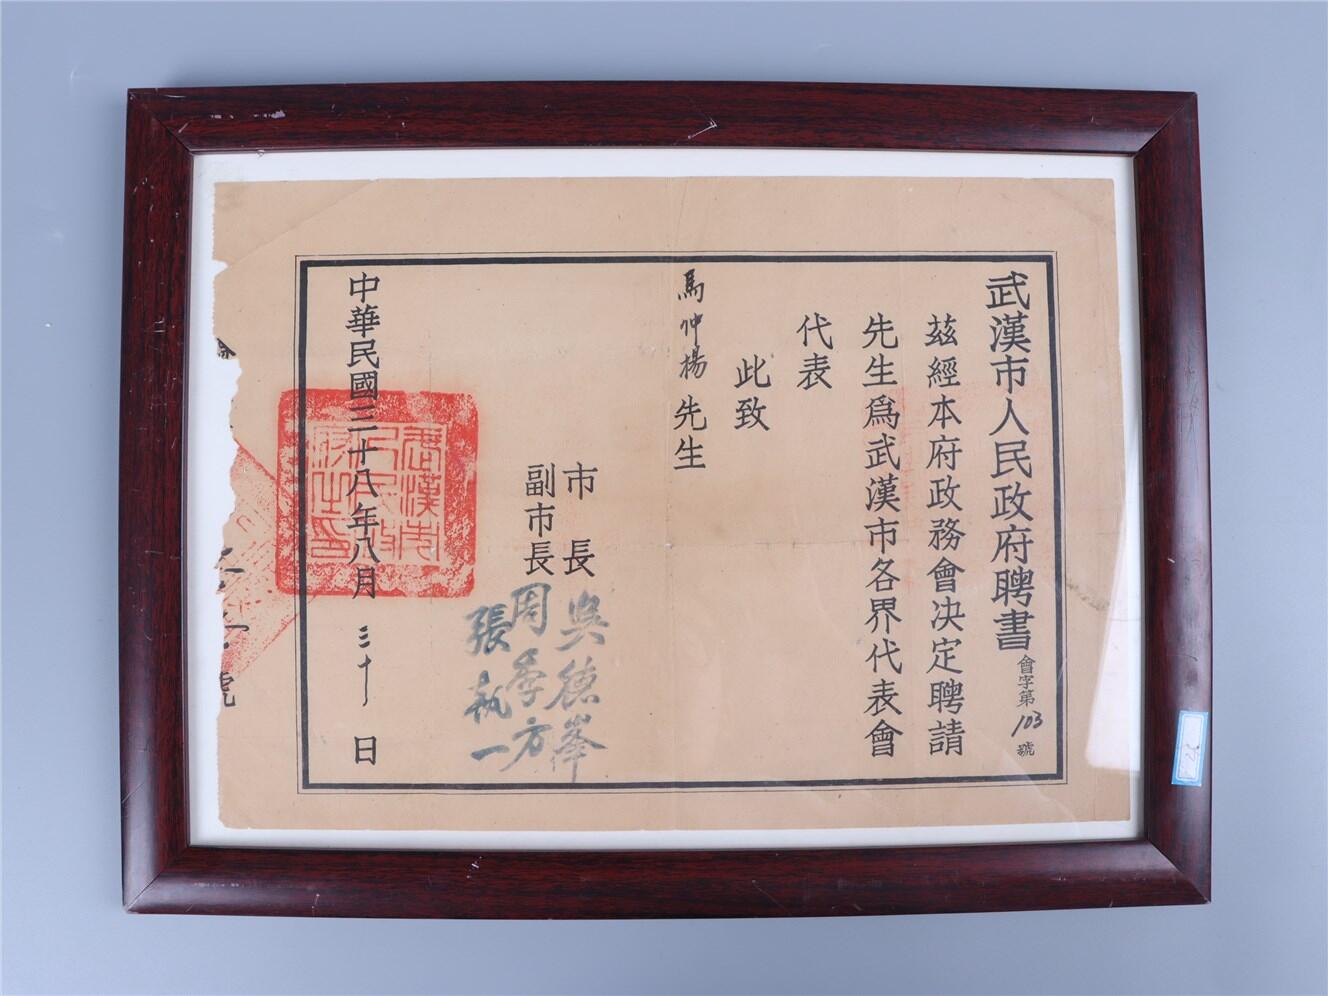 武漢市人民政府聘書
會字第103號
茲經本府政務會决定聘請
先生爲武漢市各界代表會
代表
此致
馬仲楊先生
市長吳德峯
副市長周季方
張執一
中華民國三十八年八月三十日
武漢市人民政府之印
號